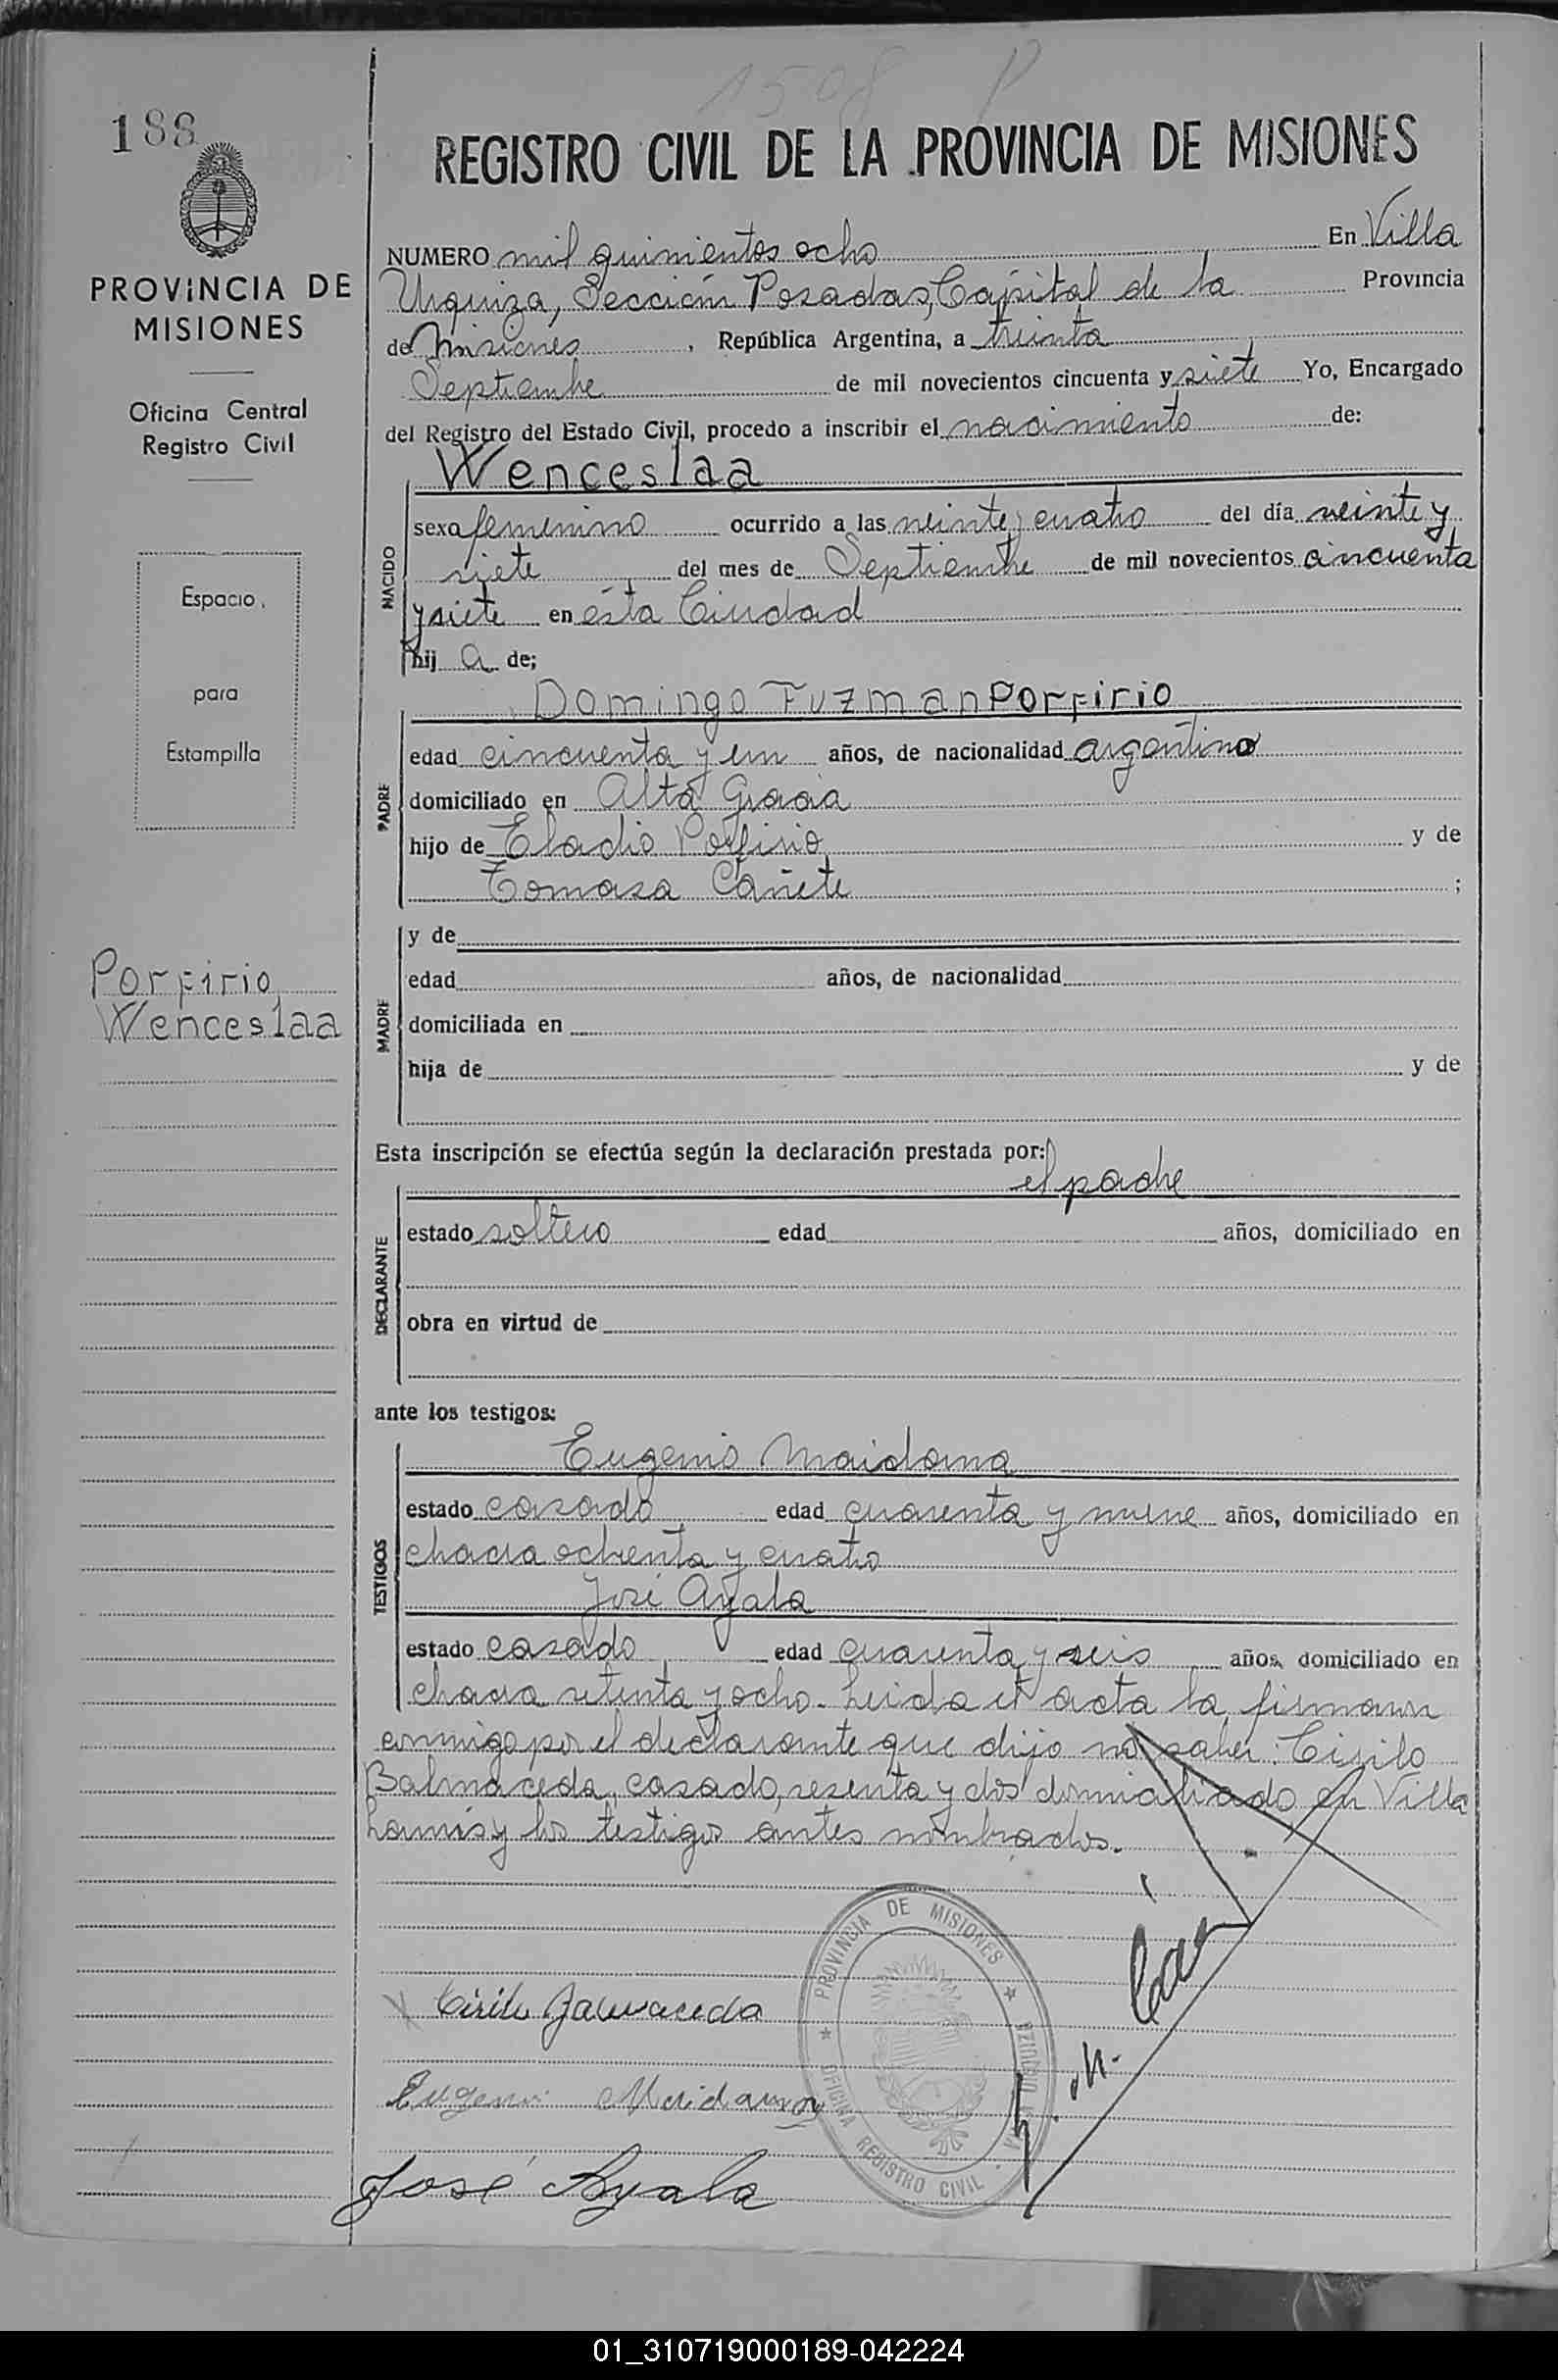 1508 P
188
REGISTRO CIVIL DE LA PROVINCIA DE MISIONES
PROVINCIA DE
MISIONES
Oficina Central
Registro Civil
Espacio
para
Estampilla
Porfirio
Wenceslaa
NUMERO mil quinientos ocho En Villa
Urquiza, Sección Posadas, Capital de la Provincia
de Misiones, República Argentina, a treinta
Septiembre de mil novecientos cincuenta y siete Yo, Encargado
del Registro del Estado Civil, procedo a inscribir el nacimiento de:
Wenceslaa
NACIDO
sexo femenino ocurrido a las veinte y cuatro del día veinte y
siete del mes de Septiembre de mil novecientos cincuenta
y siete en ésta Ciudad
hij a de;
Domingo Fuzman Porfirio
PADRE
edad cincuenta y un años, de nacionalidad argentino
domiciliado en Alta Gracia
hijo de Eladio Porfirio y de
Tomasa Cañete ;
MADRE
y de
edad años, de nacionalidad
domiciliada en
hija de y de
Esta inscripción se efectúa según la declaración prestada por:
el padre
DECLARANTE
estado soltero edad años, domiciliado en
obra en virtud de
ante los testigos:
TESTIGOS
Eugenio Maidana
estado casado edad cuarenta y nueve años, domiciliado en
chacra ochenta y cuatro
José Ayala
estado casado edad cuarenta y seis años, domiciliado en
chacra setenta y ocho. Leida el acta la firmaron
conmigo por el declarante que dijo no saber. Cirilo
Balmaceda, casado, sesenta y dos domiciliado en Villa
Lanús y los testigos antes nombrados.
Cirilo Balmaceda
Eugenio Maidana
José Ayala
PROVINCIA DE MISIONES
OFICINA REGISTRO CIVIL
VILLA URQUIZA
01_310719000189-042224